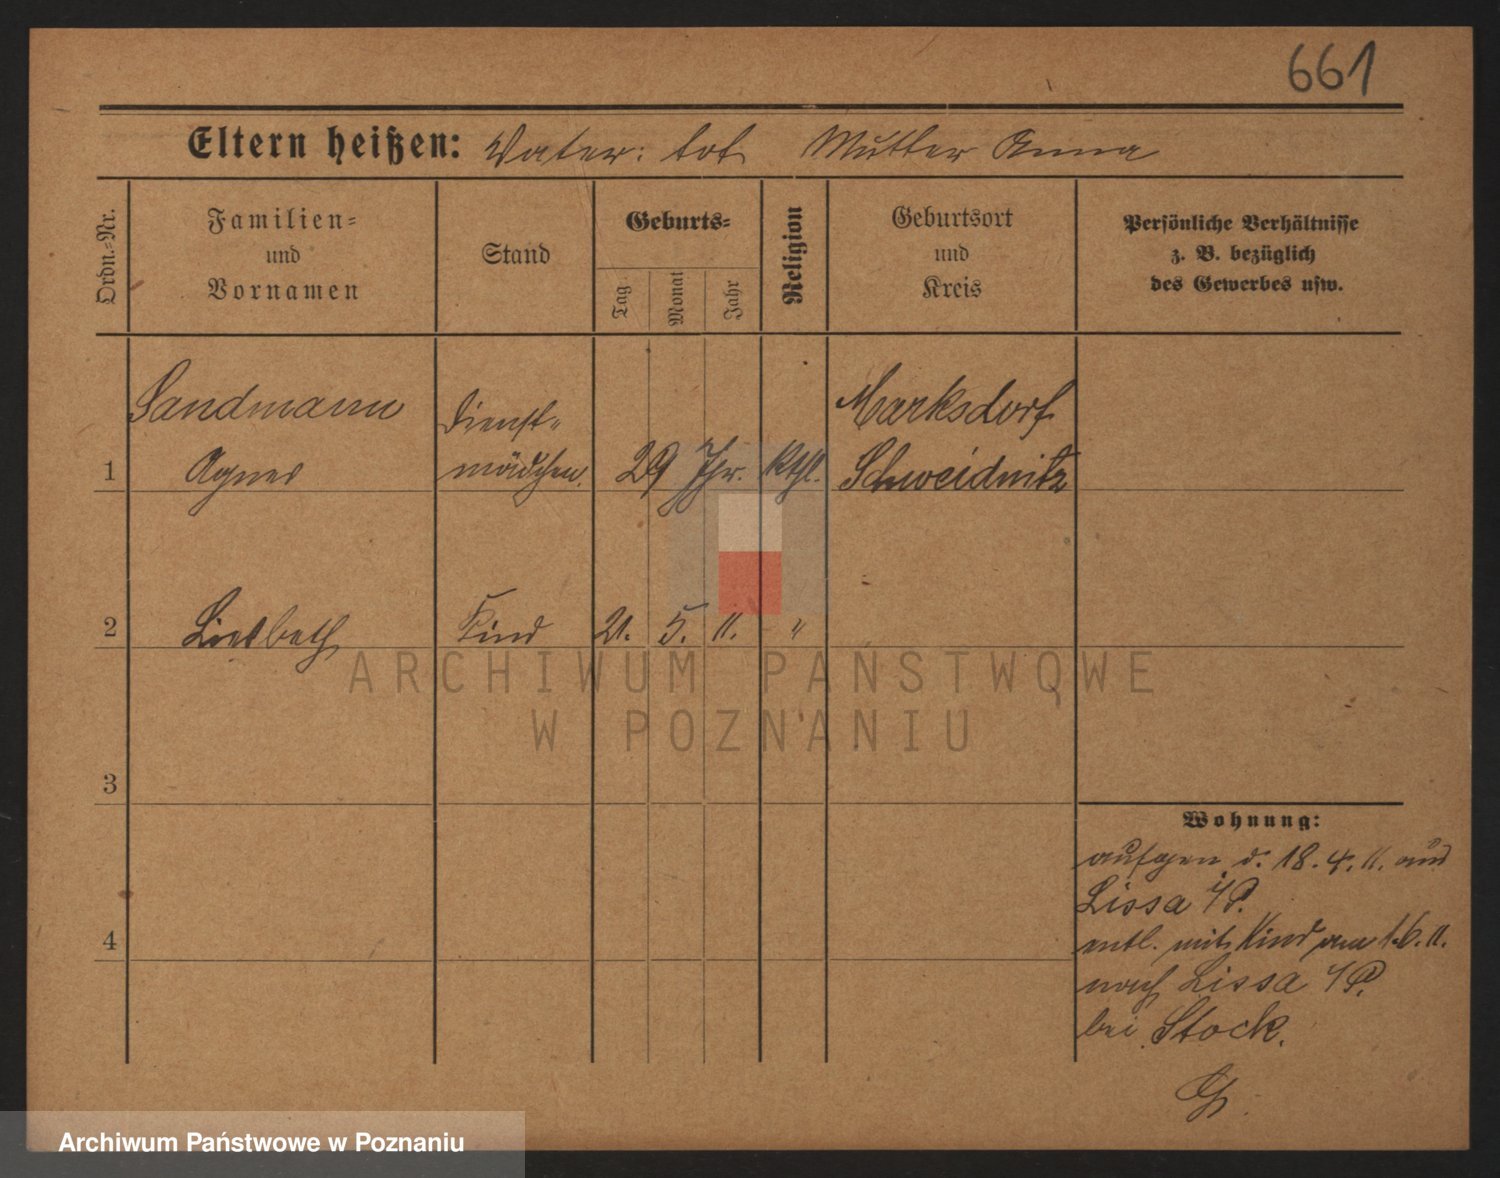 661
Eltern heißen: Vater: tot Mutter Anna
Ordn.-Nr.
Familien-
und
Vornamen
Stand
Geburts-
Tag
Monat
Jahr
Religion
Geburtsort
und
Kreis
Persönliche Verhältnisse
z. B. bezüglich
des Gewerbes usw.
Sandmann Dienst- Marksdorf
1 Agnes mädchen. 29 Jhr. Kthl. Schweidnitz
2 Liesbeth Kind 21. 5. 11. "
ARCHIWUM PAŃSTWOWE
W POZNANIU
3
Wohnung:
aufgen. d. 18. 4. 11. aus
Lissa i/P.
4 entl. mit Kind am 1. 6. 11.
nach Lissa i/P.
bei Stock.
Archiwum Państwowe w Poznaniu